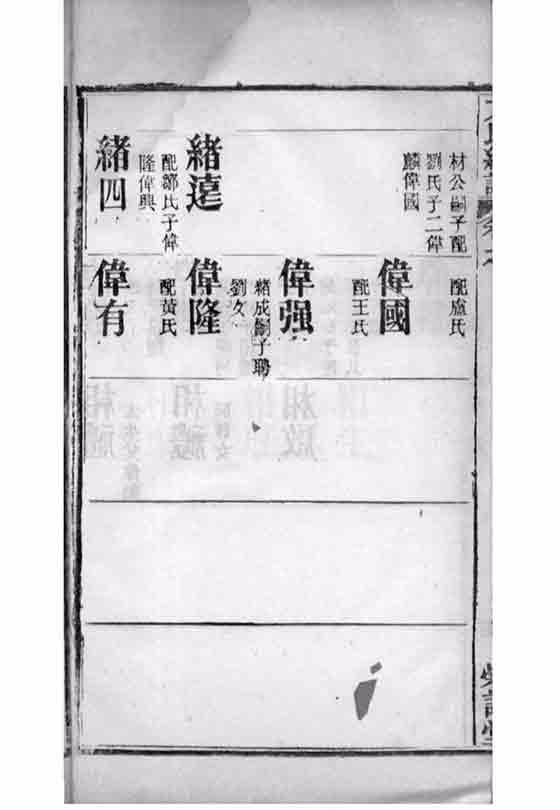 材公嗣子配
劉氏子二偉
麟偉國
緒遠
配鄒氏子偉
隆偉興
緒四
配盧氏
偉國
配王氏
偉强
緒成嗣子聘
劉女
偉隆
配黃氏
偉有